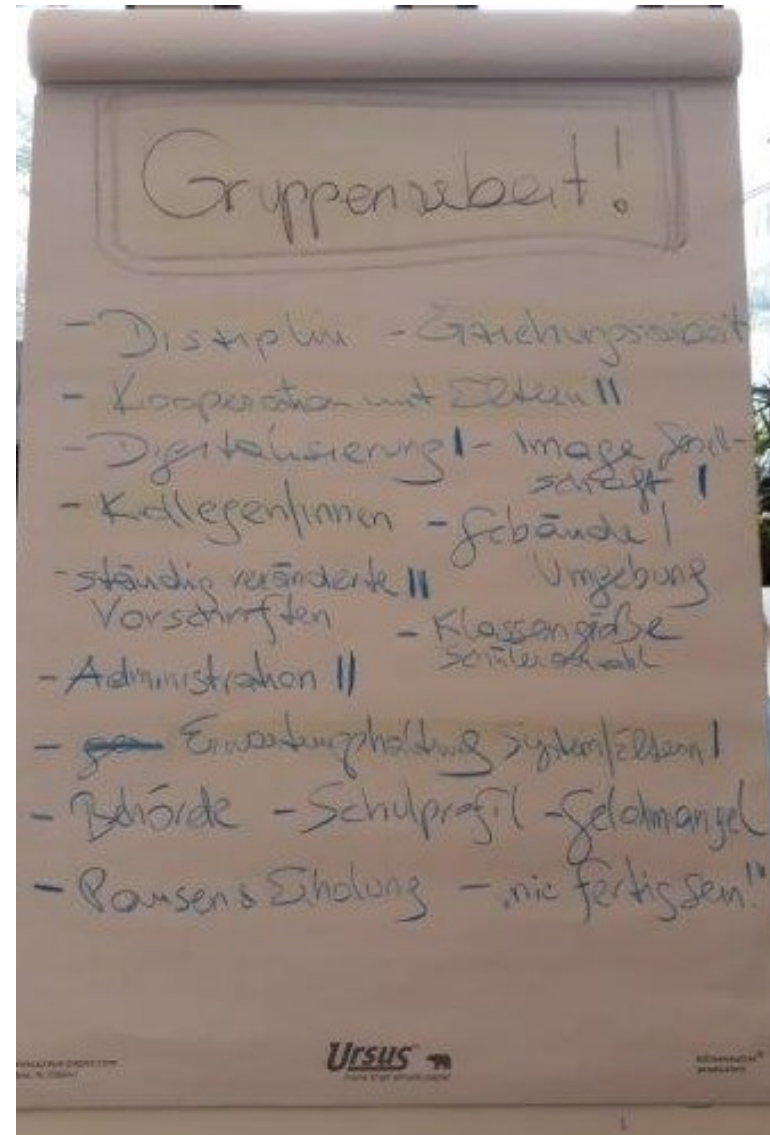 Gruppenarbeit!
- Disziplin - Erziehungsarbeit
- Kooperation mit Eltern II
- Digitalisierung I - Image Gesell-
schaft I
- Kollegen/innen - Gebäude /
Umgebung
- ständig veränderte II
Vorschriften
- Klassengröße
Schüleranzahl
- Administration II
- Erwartungshaltung System/Eltern I
- Behörde - Schulprofil - Geldmangel
- Pausen & Erholung - „nie fertig sein!"
Ursus